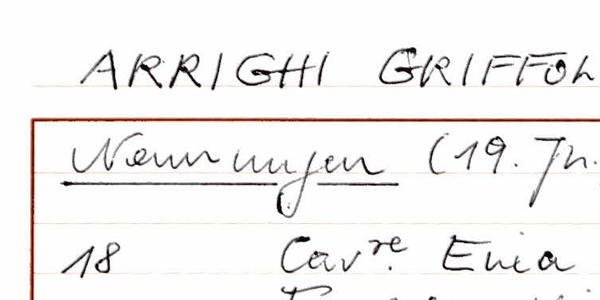 ARRIGHI GRIFFOL
Nennungen (19. Jh.
18 Cav.re Enea